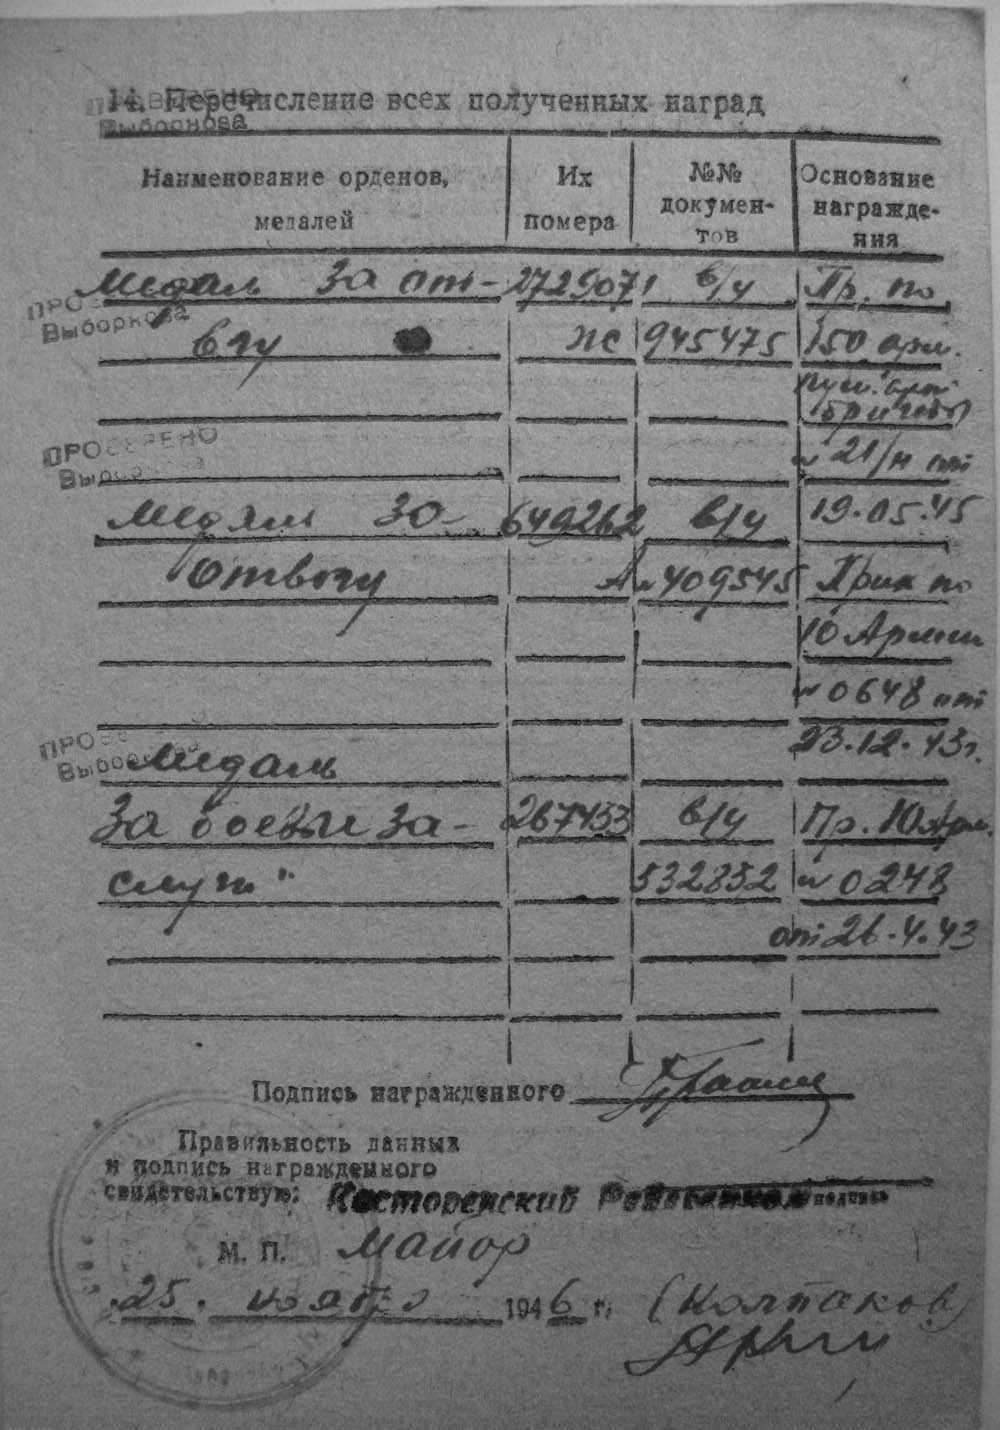 14. Перечисление всех полученных наград
ПРОВЕРЕНО
Выборнова
Наименование орденов, медалей
Их номера
№№ докумен- тов
Основание награжде- ния
Медаль За от- 2729071 в/у Пр. по
ПРОВЕРЕНО
Выборнова
вагу № 945475 150 арм.
пуш. арт
бригады
ПРОВЕРЕНО
Выборнова
№ 21/н от
Медаль За 649262 в/у 19.05.45
Отвагу А № 409545 Прик по
10 Армии
№ 0648 от
23.12.43г.
ПРОВЕРЕНО
Выборнова
Медаль
За боевые за- 267433 в/у Пр. 10 Арм.
слуги" 532852 № 0248
от 26.4.43
Подпись награжденного
Правильность данных
и подпись награжденного
свидетельствую: Касторенский подпись
М. П. Майор
25. ноября 1946 г. (Колпаков)